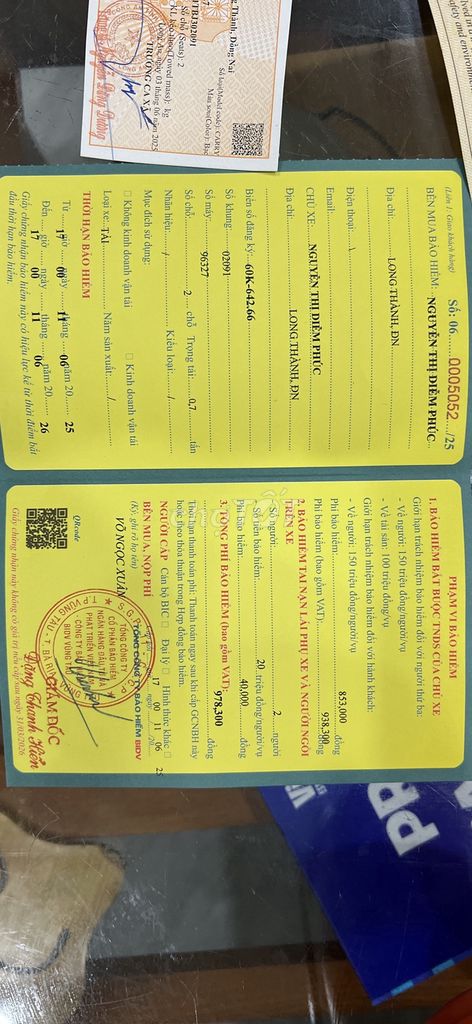 g Thành, Đồng Nai
Số loại(Model code): CARRY
Màu sơn(Color): Bạc
Số chỗ (Seats): 2
KL kéo theo(Towed mass): kg
Long An, ngày 03 tháng 06 năm 2025
TRƯỞNG CA XÃ
(Liên 1: Giao khách hàng)
Số: 06 0005052 /25
BÊN MUA BẢO HIỂM: NGUYỄN THỊ DIỄM PHÚC
Địa chỉ: LONG THÀNH, ĐN
Điện thoại: \
Email:
CHỦ XE: NGUYỄN THỊ DIỄM PHÚC
Địa chỉ: LONG THÀNH, ĐN
Biển số đăng ký: 60K-642,66
Số khung: 02091
Số máy: 96327
Số chỗ: 2 chỗ Trọng tải: 0,7 tấn
Nhãn hiệu: / Kiểu loại: /
Mục đích sử dụng:
□ Không kinh doanh vận tải □ Kinh doanh vận tải
Loại xe: TẢI Năm sản xuất: /
THỜI HẠN BẢO HIỂM
Từ: 17 giờ 00 ngày 11 tháng 06 năm 20 25
Đến: 17 giờ 00 ngày 11 tháng 06 năm 20 26
Giấy chứng nhận bảo hiểm này có hiệu lực kể từ thời điểm bắt
đầu thời hạn bảo hiểm.
PHẠM VI BẢO HIỂM
1. BẢO HIỂM BẮT BUỘC TNDS CỦA CHỦ XE
Giới hạn trách nhiệm bảo hiểm đối với người thứ ba:
- Về người: 150 triệu đồng/người/vụ
- Về tài sản: 100 triệu đồng/vụ
Giới hạn trách nhiệm bảo hiểm đối với hành khách:
- Về người: 150 triệu đồng/người/vụ
Phí bảo hiểm: 853,000 đồng
Phí bảo hiểm (bao gồm VAT): 938,300 đồng
2. BẢO HIỂM TAI NẠN LÁI PHỤ XE VÀ NGƯỜI NGỒI
TRÊN XE
Số người: 2 người
Số tiền bảo hiểm: 20 triệu đồng/người/vụ
Phí bảo hiểm: 40,000 đồng
3. TỔNG PHÍ BẢO HIỂM (bao gồm VAT):
978,300 đồng
Thời hạn thanh toán phí: Thanh toán ngay sau khi cấp GCNBH này
hoặc theo thỏa thuận trong Hợp đồng bảo hiểm
NGƯỜI CẤP Cán bộ BIC □ Đại lý □ Hình thức khác □
BÊN MUA, NỘP PHÍ
(Ký, ghi rõ họ tên)
17 00 11 06 25
TỔNG CÔNG TY BẢO HIỂM BIDV
VÕ NGỌC XUÂN
TỔNG CÔNG TY
CỔ PHẦN BẢO HIỂM
NGÂN HÀNG ĐẦU TƯ VÀ
PHÁT TRIỂN VIỆT NAM
CÔNG TY BẢO HIỂM
BIDV VŨNG TÀU
GIÁM ĐỐC
Đặng Thanh Hiền
QRcode
Giấy chứng nhận này không có giá trị nếu cấp sau ngày 31/03/2026
PR